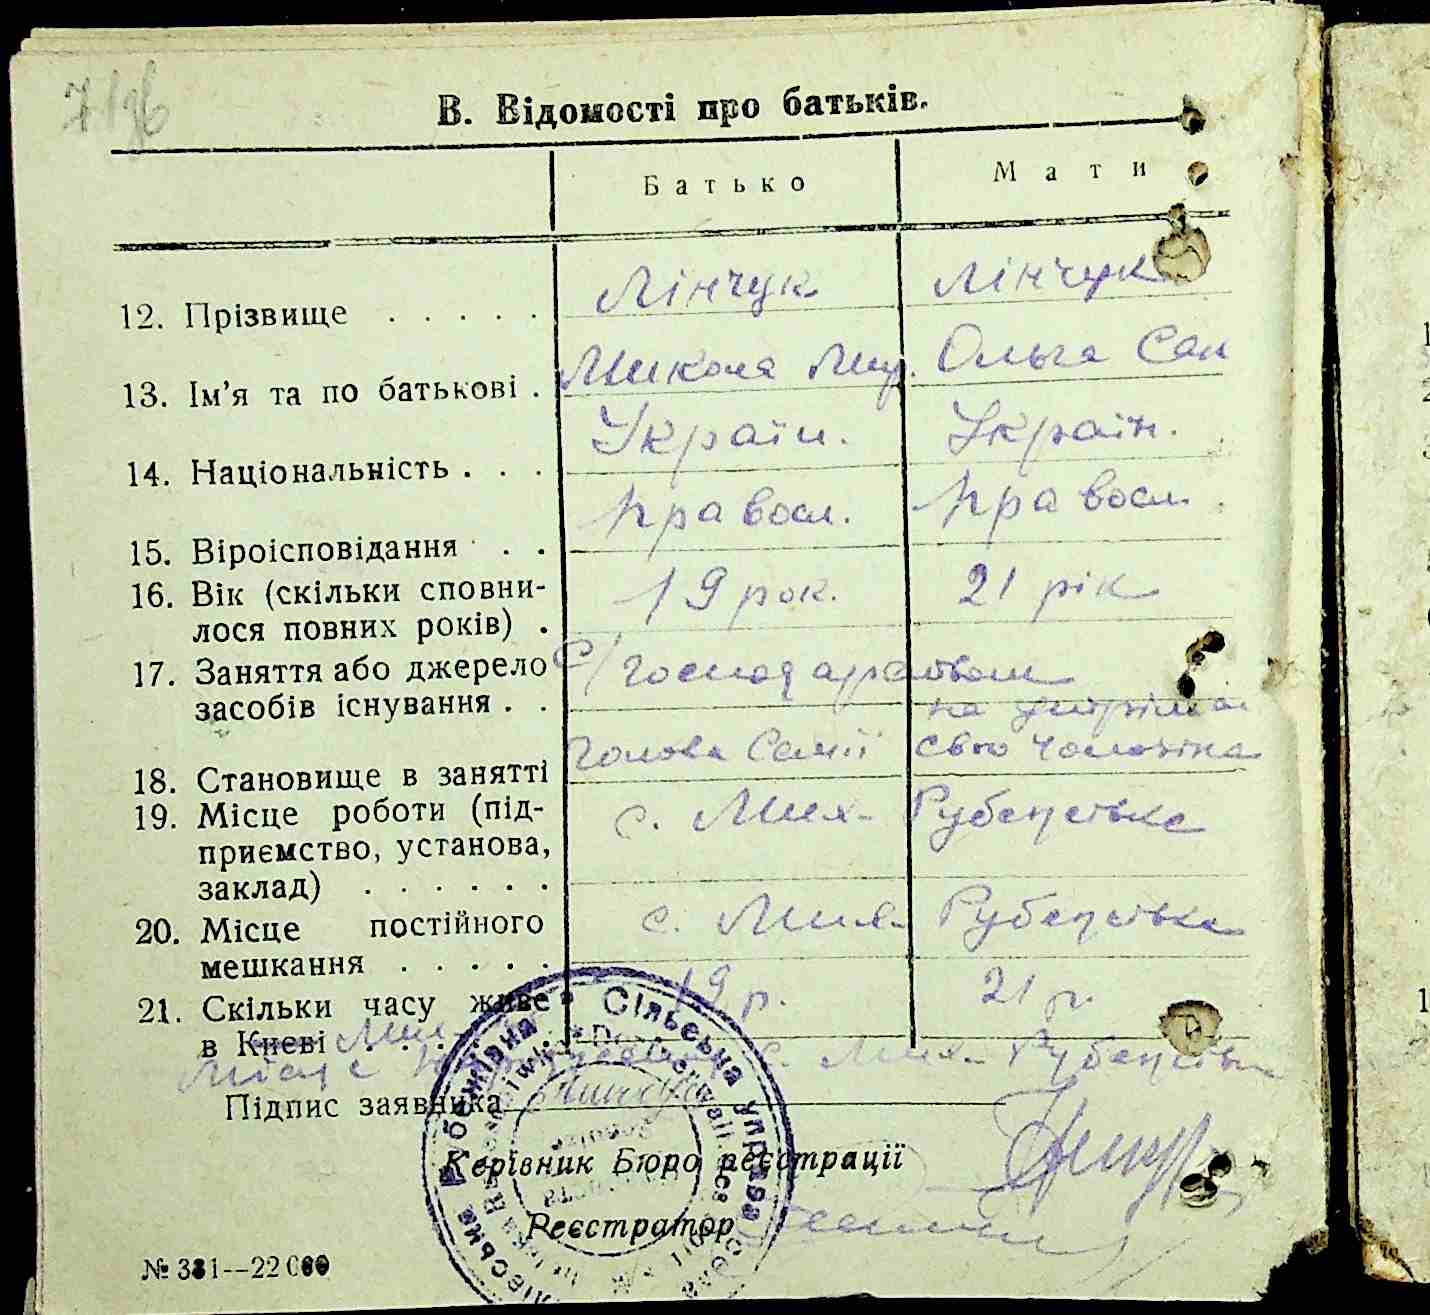 В. Відомості про батьків.
Батько Мати
12. Прізвище . . . . . Лінчук Лінчук
13. Ім'я та по батькові . Микола Мир. Ольга Сам
14. Національність . . . Україн. Україн.
15. Віроісповідання . . Правосл. Правосл.
16. Вік (скільки сповни-
лося повних років) . 19 рок. 21 рік
17. Заняття або джерело
засобів існування . . С/господарством
на
18. Становище в занятті Голова Семії свого чоловіка
19. Місце роботи (під-
приємство, установа,
заклад) . . . . . . с. Мих-Рубежівка
20. Місце постійного
мешкання . . . . . с. Мих-Рубежівка
21. Скільки часу живе 19 р. 21 р.
в Києві . . . .
с. Мих-
Підпис заявника Линчук
Керівник Бюро реєстрації
Реєстратор
Сільська Управа
№ 331--22000